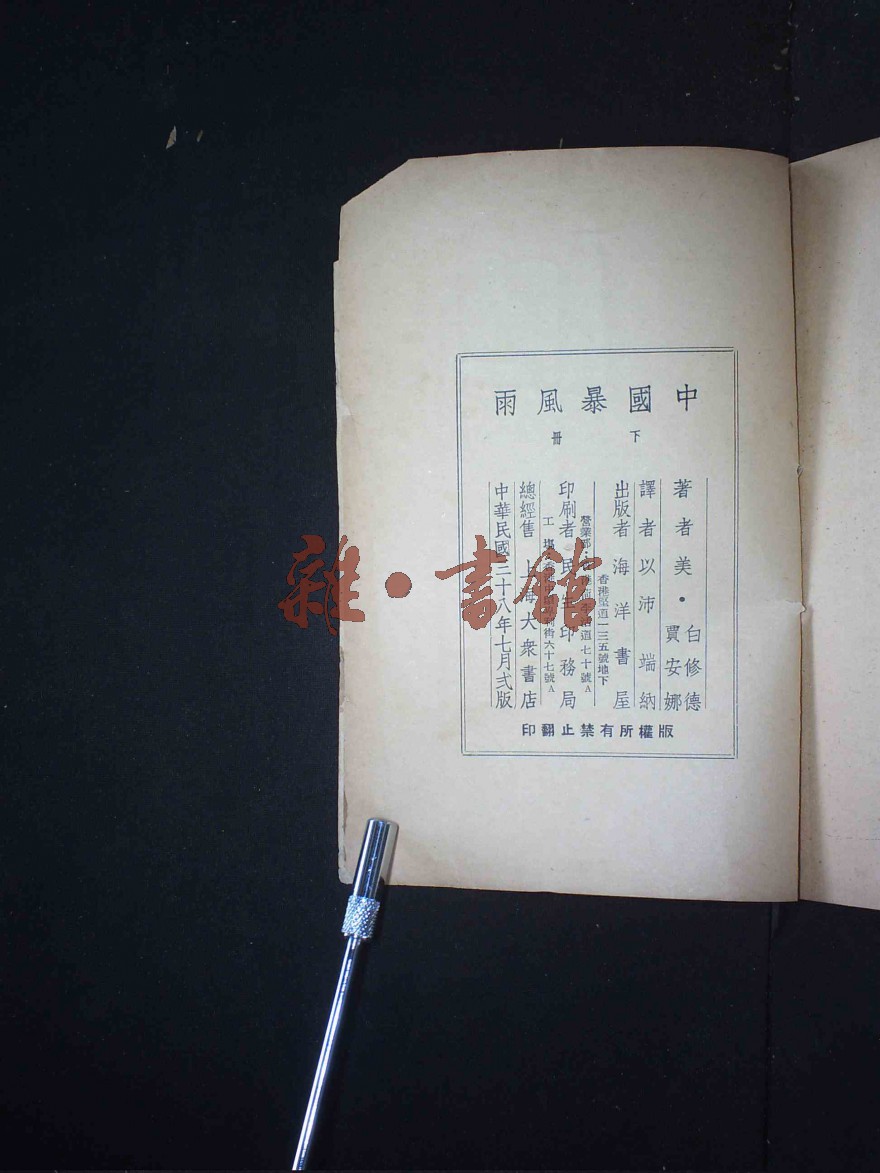 中國暴風雨
下冊
著者美・白修德
賈安娜
譯者以沛 端納
出版者海洋書屋
香港堅道一三五號地下
道七十號A
印刷者 民生印務局
街六十七號A
總經售 上海大衆書店
中華民國三十八年七月弍版
版權所有禁止翻印
雜・書館